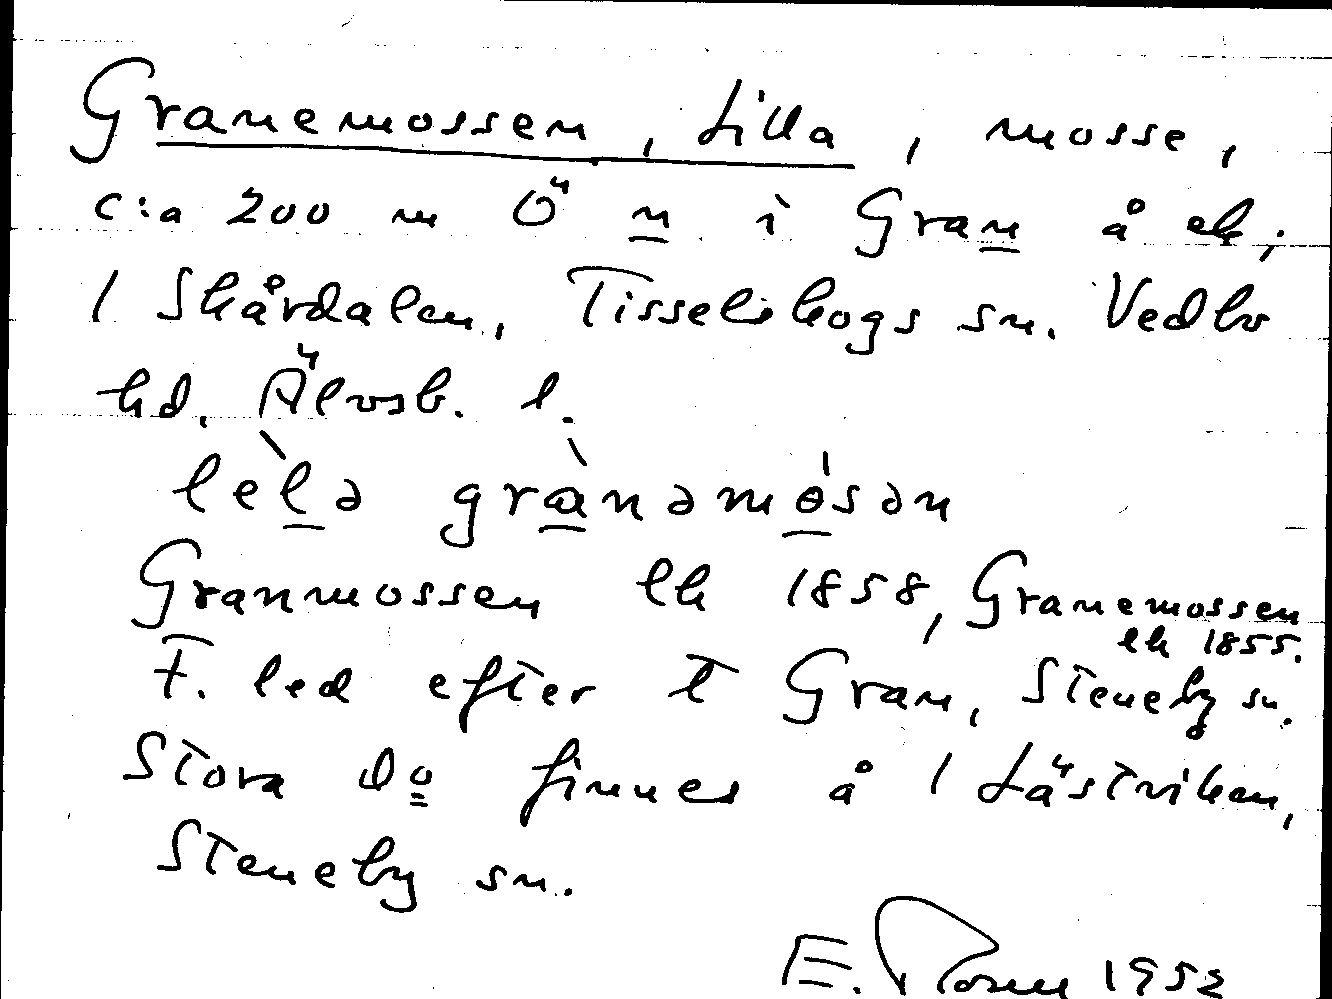 Granemossen, Lilla, mosse,
c:a 200 m Ö n i Gran å ek,
1 Skårdalen, Tisselskogs sn. Vedbo
hd. Älvsb. l.
lèlə grànəmósən
Granmossen lk 1858, Granemossen
lk 1855.
F. led efter t Gran, Steneby sn.
Stora do finnes å 1 Låstviken,
Steneby sn.
E. Rosen 1952